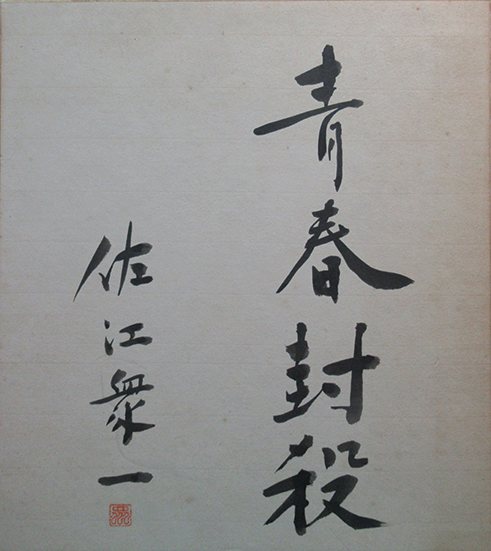 青春封殺
佐江衆一